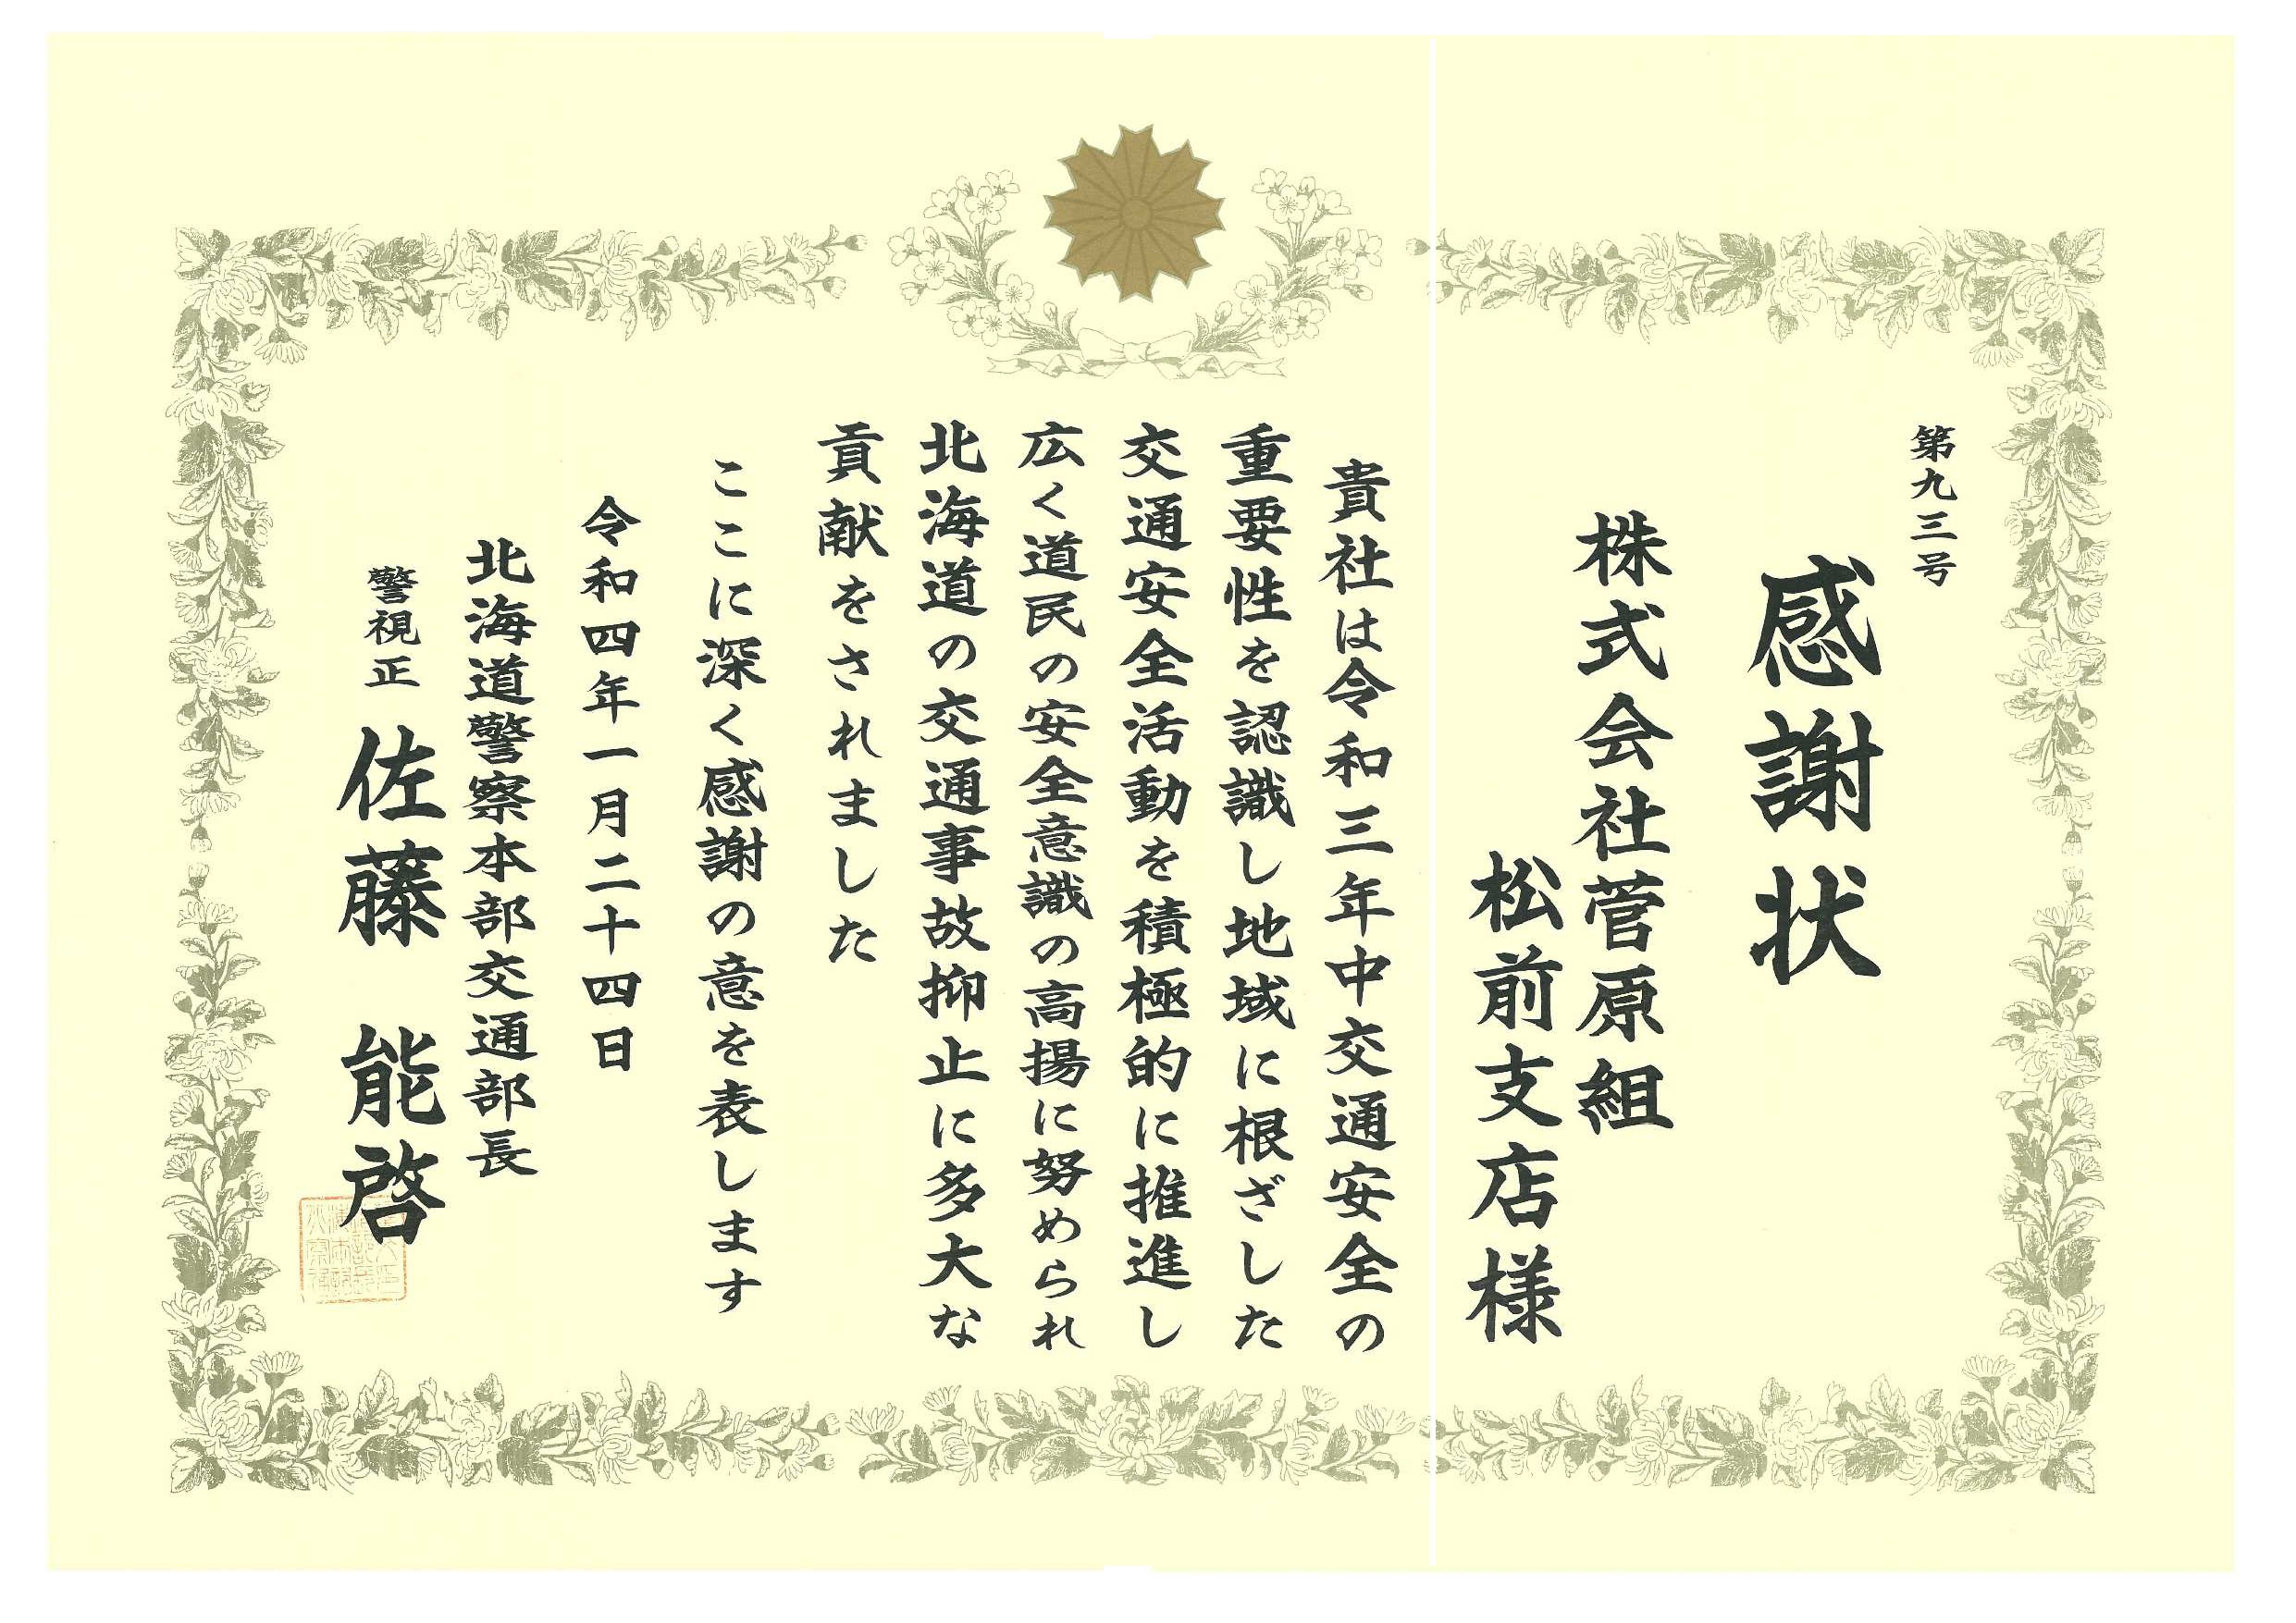 第九三号
感謝状
株式会社菅原組
松前支店様
貴社は令和三年中交通安全の
重要性を認識し地域に根ざした
交通安全活動を積極的に推進し
広く道民の安全意識の高揚に努められ
北海道の交通事故抑止に多大な
貢献をされました
ここに深く感謝の意を表します
令和四年一月二十四日
北海道警察本部交通部長
警視正 佐藤 能啓